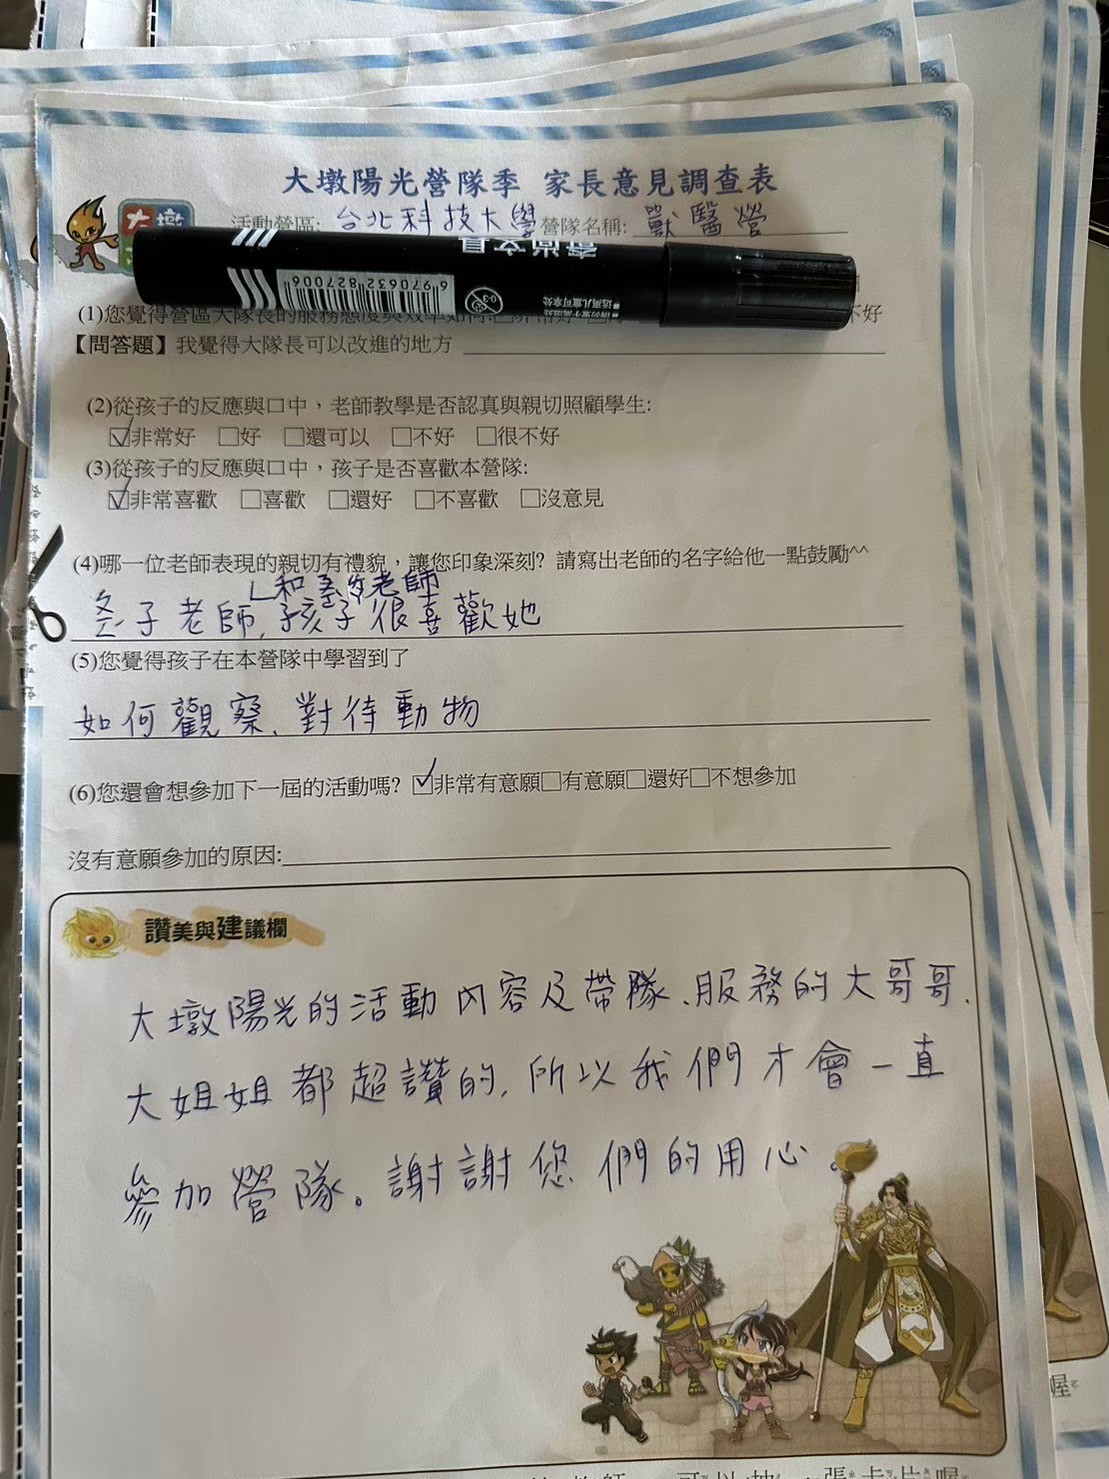 大墩陽光營隊季 家長意見調查表
大墩
活動營區: 台北科技大學 營隊名稱: 獸醫營
6 970632 827006
0-3
(1)您覺得營區大隊長的服務態度與效率如何: 不好
【問答題】我覺得大隊長可以改進的地方
(2)從孩子的反應與口中,老師教學是否認真與親切照顧學生:
☑非常好 □好 □還可以 □不好 □很不好
(3)從孩子的反應與口中,孩子是否喜歡本營隊:
☑非常喜歡 □喜歡 □還好 □不喜歡 □沒意見
(4)哪一位老師表現的親切有禮貌,讓您印象深刻? 請寫出老師的名字給他一點鼓勵^^
和 老師
子老師,孩子很喜歡她
(5)您覺得孩子在本營隊中學習到了
如何觀察、對待動物
(6)您還會想參加下一屆的活動嗎? ☑非常有意願□有意願□還好□不想參加
沒有意願參加的原因:
讚美與建議欄
大墩陽光的活動內容及帶隊、服務的大哥哥、
大姐姐都超讚的,所以我們才會一直
參加營隊。謝謝您們的用心。
喔
可以抽 一張卡片喔